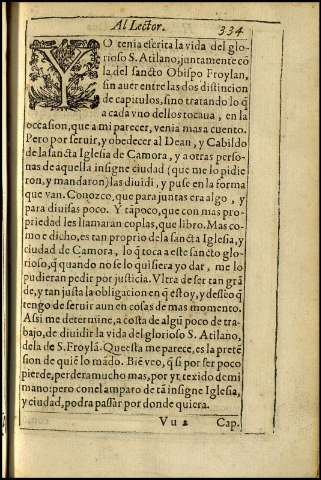 Al Lector.
334
YO tenia escrita la vida del glo-
rioso S. Atilano, juntamente cō
la del sancto Obispo Froylan,
sin auer entre las dos distincion
de capitulos, sino tratando lo q̄
a cada vno dellos tocaua, en la
occasion, que a mi parecer, venia mas a cuento.
Pero por seruir, y obedecer al Dean, y Cabildo
de la sancta Iglesia de Çamora, y a otras perso-
nas de aquella insigne ciudad (que me lo pidie
ron, y mandaron) las diuidi, y puse en la forma
que van. Conozco, que para juntas era algo, y
para diuisas poco. Y tāpoco, que con mas pro-
priedad les llamaran coplas, que libro. Mas co-
mo e dicho, es tan proprio de la sancta Iglesia, y
ciudad de Camora, lo q̄ toca a este sancto glo-
rioso, q̄ quando no se lo quisiera yo dar, me lo
pudieran pedir por justicia. Vltra de ser tan grā
de, y tan justa la obligacion en q̄ estoy, y desseo q̄
tengo de seruir aun en cosas de mas momento.
Assi me determine, a costa de algū poco de tra-
bajo, de diuidir la vida del glorioso S. Atilano,
dela de S. Froylā. Que esta me parece, es la pretē
sion de quiē lo mādo. Biē veo, q̄ si por ser poco
pierde, perdera mucho mas, por yr texido de mi
mano: pero con el amparo de tā insigne Iglesia,
y ciudad, podra passar por donde quiera.
Vu 2 Cap.